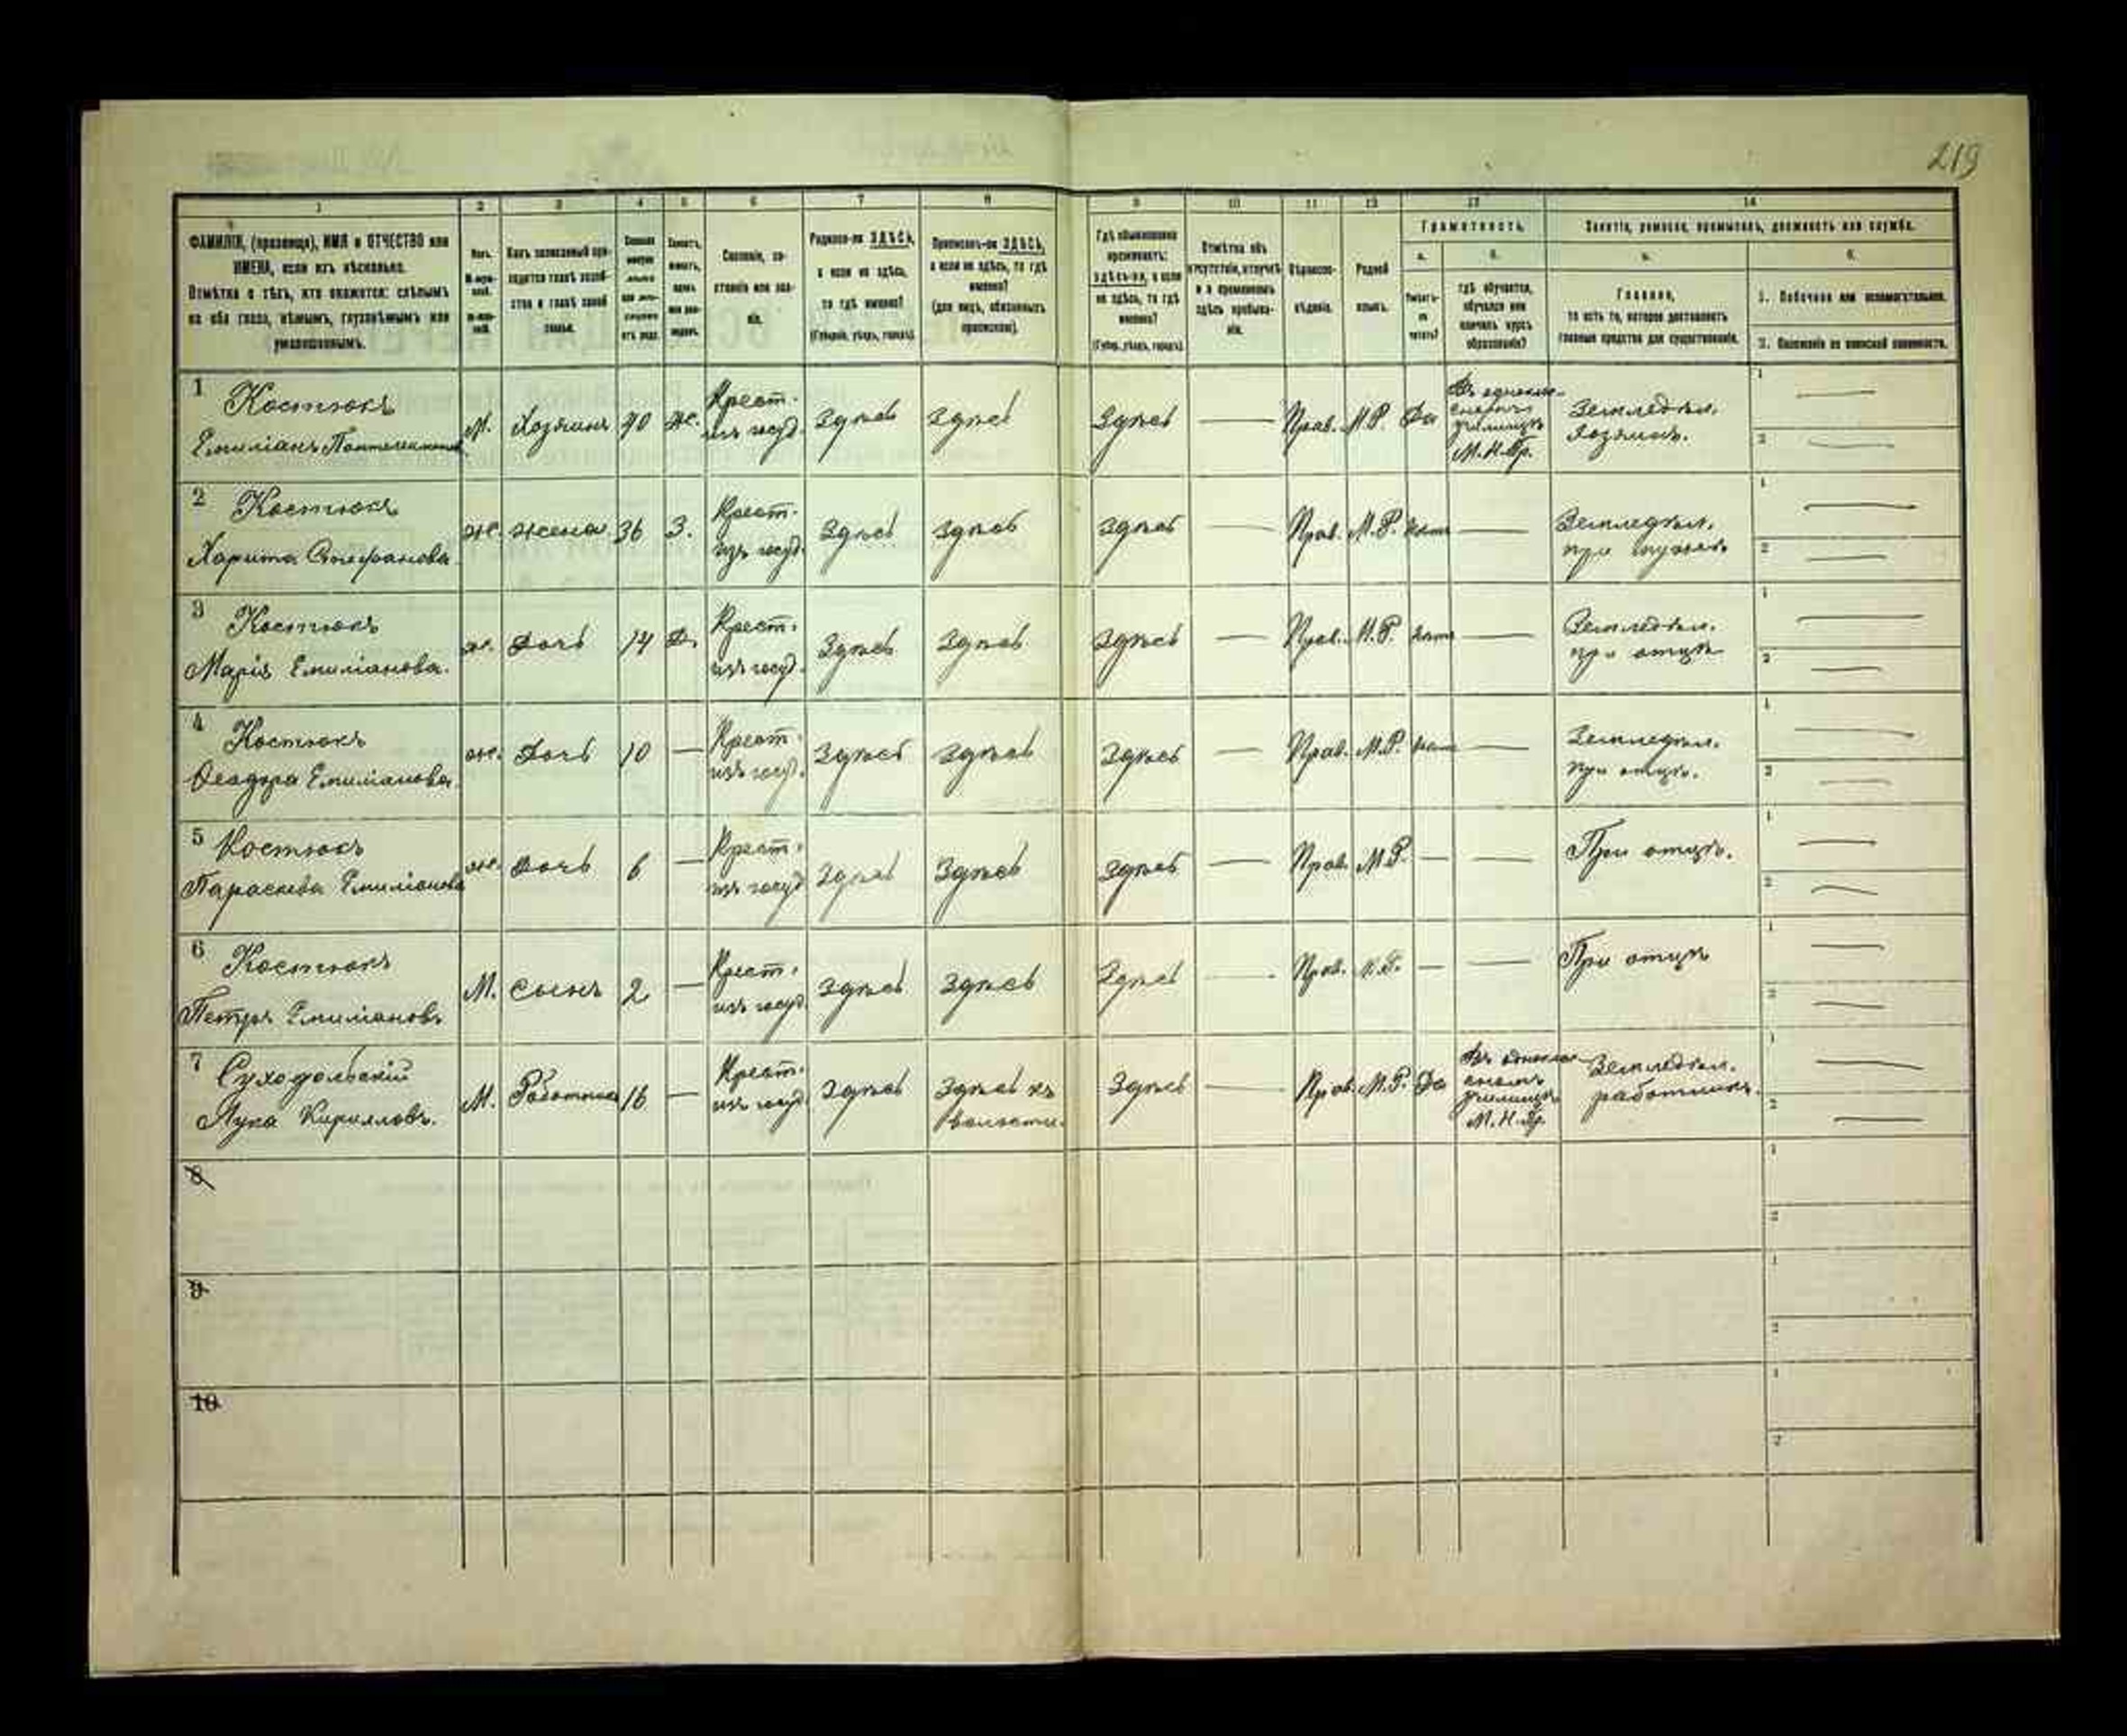 219
1 2 3 4 5 6 7 8 9 10 11 12 13 14
ФАМИЛІЯ, (прозвище), ИМЯ и ОТЧЕСТВО или
ИМЕНА, если ихъ нѣсколько.
Отмѣтка о тѣхъ, кто окажется: слѣпымъ
на оба глаза, нѣмымъ, глухонѣмымъ или
умалишеннымъ.
Полъ.
Какъ записанный при-
ходится главѣ хозяй-
ства и главѣ своей
семьи.
Сословіе, со-
стояніе или зва-
ніе.
Родился-ли ЗДѢСЬ,
а если не здѣсь,
то гдѣ именно?
(Губернія, уѣздъ, городъ).
Приписанъ-ли ЗДѢСЬ,
а если не здѣсь, то гдѣ
именно?
(для лицъ, обязанныхъ
припискою).
Гдѣ обыкновенно
проживаетъ:
ЗДѢСЬ-ли, а если
не здѣсь, то гдѣ
именно?
(Губер., уѣздъ, городъ).
Отмѣтка объ
отсутствіи, отлучкѣ
и о временномъ
здѣсь пребыва-
ніи.
Вѣроиспо-
вѣданіе.
Родной
языкъ.
Грамотность.
а.
Умѣетъ-
ли
читать?
б.
гдѣ обучается,
обучался или
кончилъ курсъ
образованія?
Занятіе, ремесло, промыселъ, должность или служба.
а.
Главное,
то есть то, которое доставляетъ
главныя средства для существованія.
б.
1. Побочное или вспомогательное.
2. Положеніе по воинской повинности.
1 Костюкъ
Емиліанъ
М. Хозяинъ 40 Ж. Крест. изъ госуд. Здѣсь Здѣсь Здѣсь — Прав. М.Р. Да
Въ однокла-
сномъ
училищѣ
М.Н.Пр.
Земледѣл.
хозяинъ.
1 —
2 —
2 Костюкъ
Харита Стефанова
ж. жена 36 З. Крест. изъ госуд. Здѣсь Здѣсь Здѣсь — Прав. М.Р. Нѣтъ —
Земледѣл.
при мужѣ
1 —
2 —
3 Костюкъ
Марія Емиліанова.
ж. Дочь 14 Д. Крест. изъ госуд. Здѣсь Здѣсь Здѣсь — Прав. М.Р. Нѣтъ —
Земледѣл.
при отцѣ
1 —
2 —
4 Костюкъ
Ѳеодора Емиліанова
ж. Дочь 10 — Крест. изъ госуд. Здѣсь Здѣсь Здѣсь — Прав. М.Р. Нѣтъ —
Земледѣл.
при отцѣ.
1 —
2 —
5 Костюкъ
Параскева Емиліанова
ж. Дочь 6 — Крест. изъ госуд. Здѣсь Здѣсь Здѣсь — Прав. М.Р. — —
При отцѣ.
1 —
2 —
6 Костюкъ
Петръ Емиліановъ
М. Сынъ 2 — Крест. изъ госуд. Здѣсь Здѣсь Здѣсь — Прав. М.Р. — —
При отцѣ
1 —
2 —
7 Суходольскій
Лука Кирилловъ.
М. Работникъ 16 — Крест. изъ госуд. Здѣсь Здѣсь къ
волости.
Здѣсь — Прав. М.Р. Да
Въ однокла-
сномъ
училищѣ
М.Н.Пр.
Земледѣл.
работникъ.
1 —
2 —
8
1
2
9
1
2
10
1
2